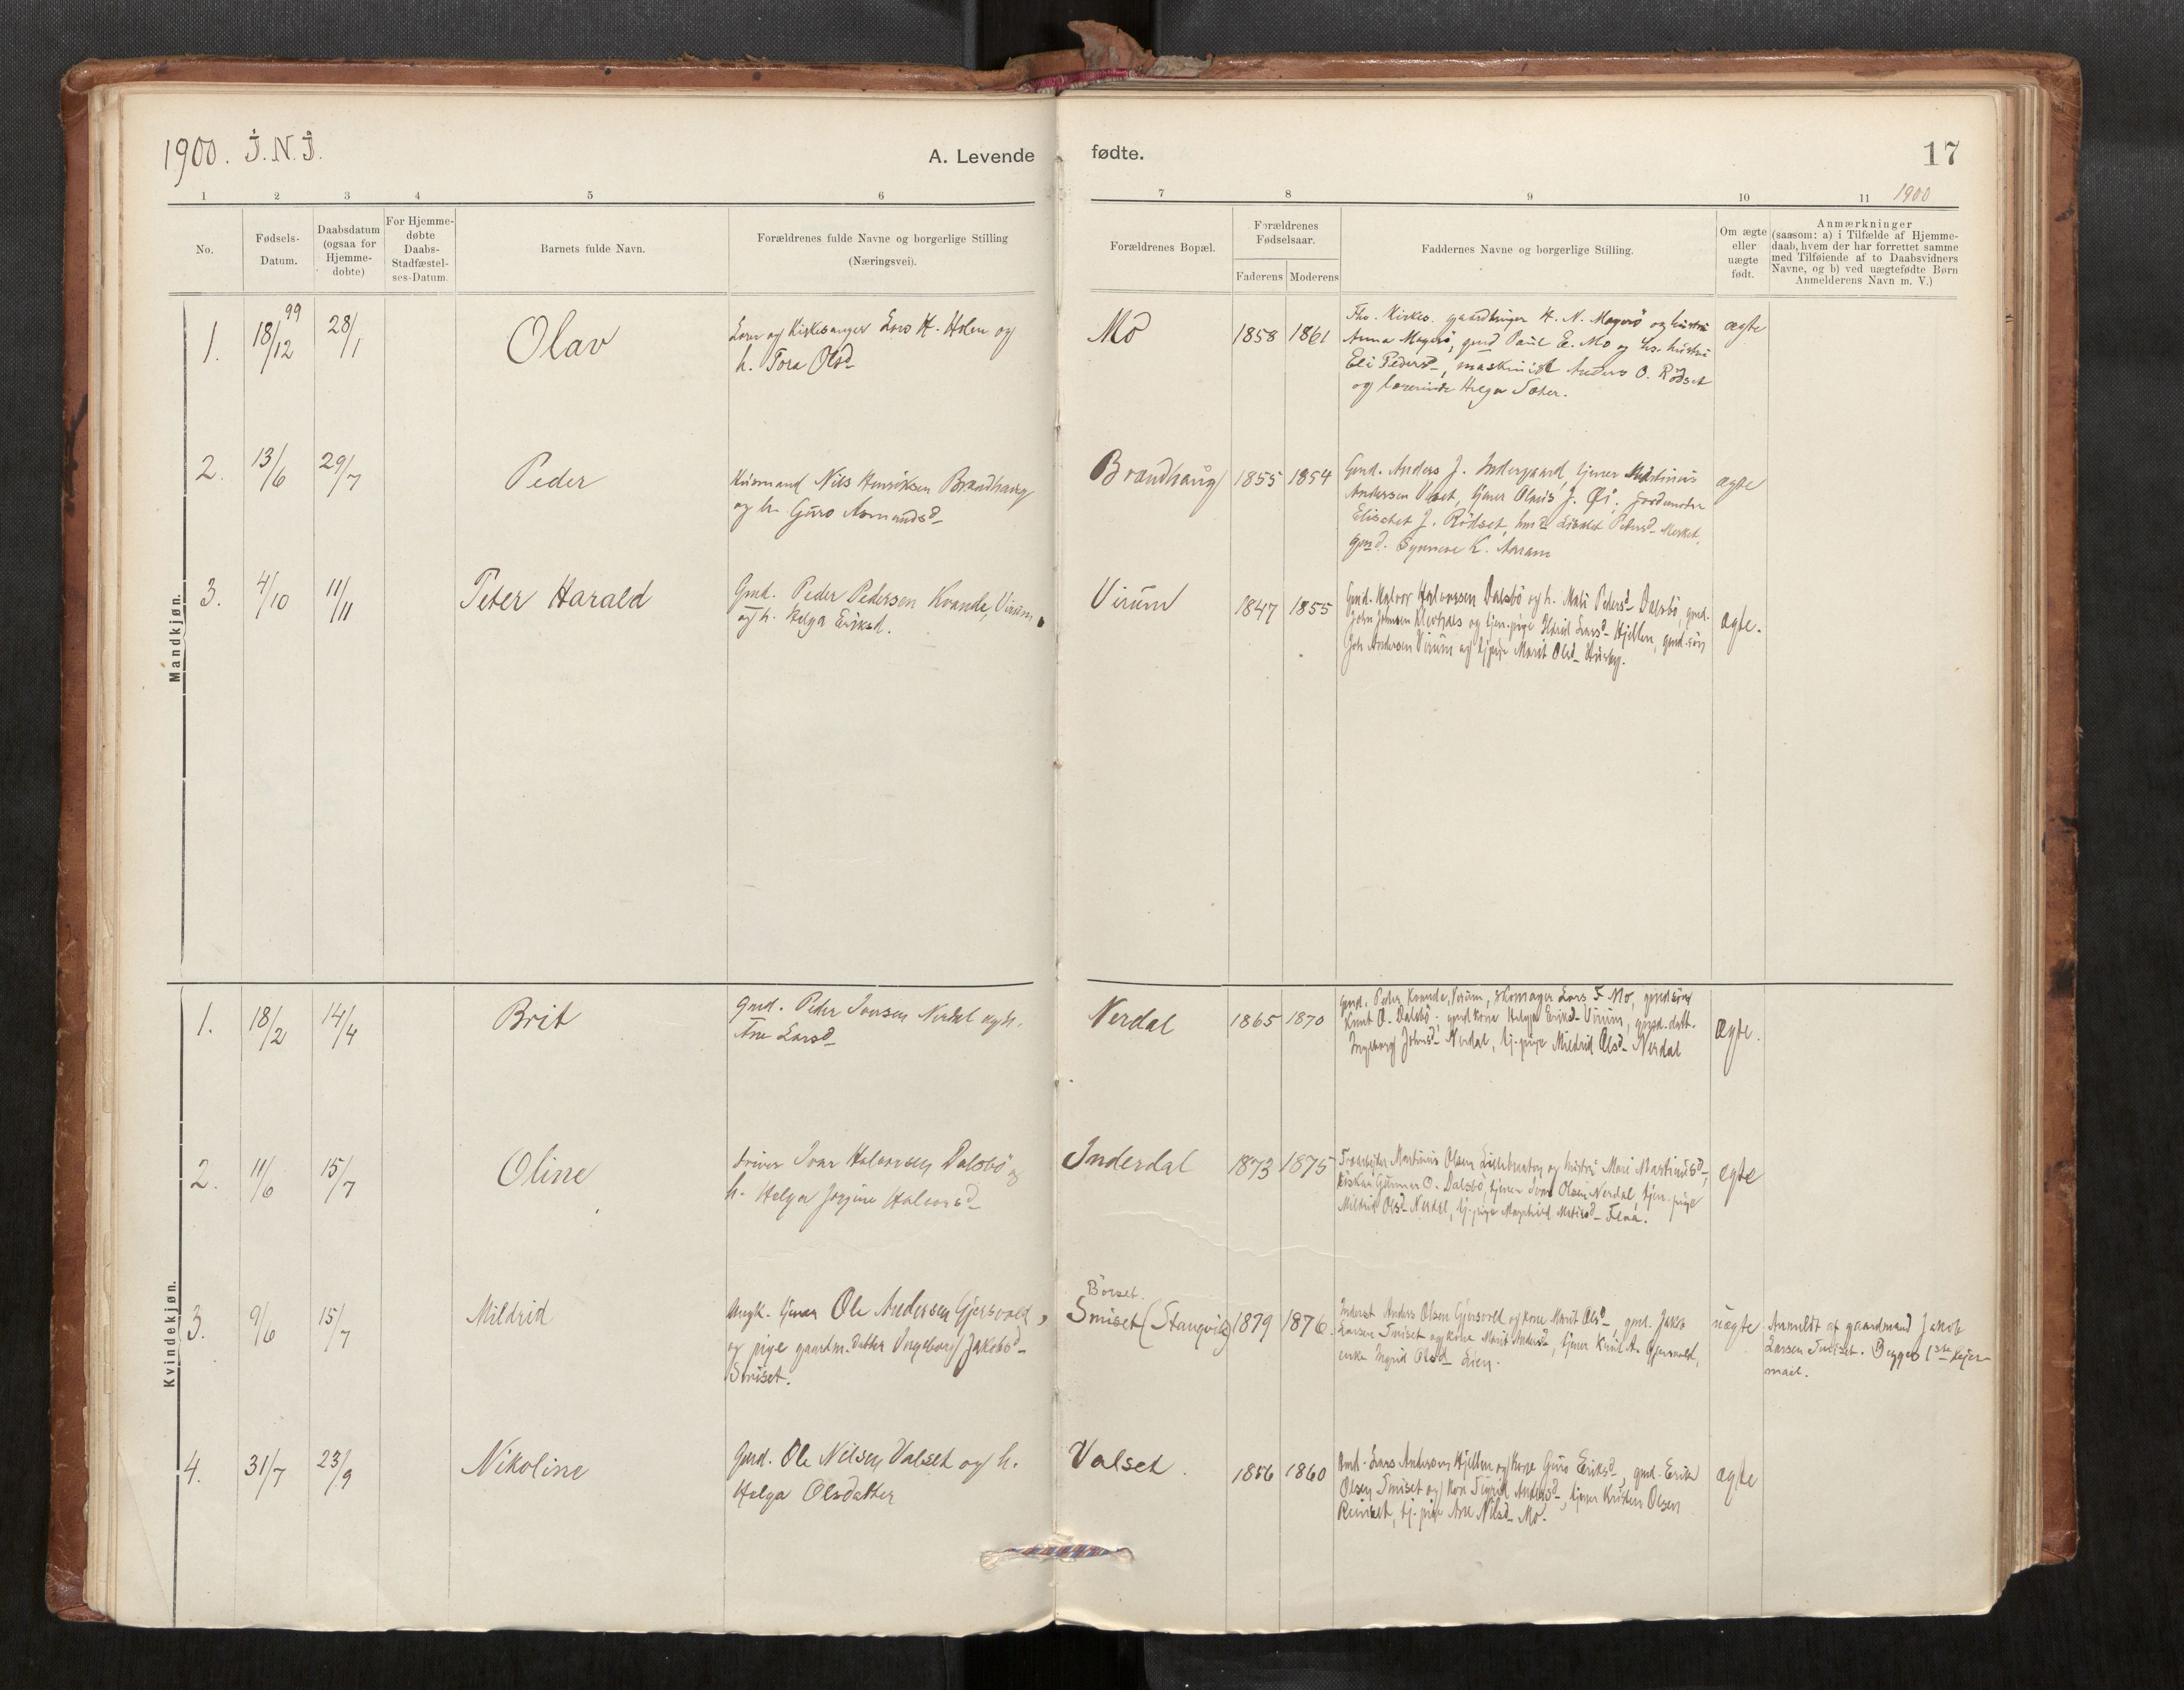 1900. J.N.J.
A. Levende
fødte.
17
1900
1 2 3 4 5 6
7 8 9 10 11
No.
Fødsels-
Datum.
Daabsdatum
(ogsaa for
Hjemme-
døbte)
For Hjemme-
døbte
Daabs-
Stadfæstel-
ses-Datum.
Barnets fulde Navn.
Forældrenes fulde Navne og borgerlige Stilling
(Næringsvei).
Forældrenes Bopæl.
Forældrenes
Fødselsaar.
Faderens Moderens
Faddernes Navne og borgerlige Stilling.
Om ægte
eller
uægte
født.
Anmærkninger
(saasom: a) i Tilfælde af Hjemme-
daab, hvem der har forrettet samme
med Tilføiende af to Daabsvidners
Navne, og b) ved uægtefødte Børn
Anmelderens Navn m. V.)
Mandkjøn.
1. 18/12 99 28/1 Olav
Lærer og Kirkesanger Lars H. Holen og
h. Tora Olsd
Mo 1858 1861
Fhv. Kirkes. gaardbruger H. N. Magerö og hustru
Anna Magerö, gmd Paul E. Mo og hs. hustru
Eli Pedersd, maskinist Anders O. Rödset
og lærerinde Helga Sæter.
ægte
2. 13/6 29/7 Peder
Husmand Nils Henriksen Brandhaug
og h. Guro Asmundsd
Brandhaug 1855 1854
Gmd. Anders J. Indergaard, tjener Martinus
Andersen, tjener Olaus J. Øi, Jordemoder
Elisabet J. Rödset, Lisabet Pedersd
gmd. Synneve K.
ægte
3. 4/10 11/11 Peter Harald
Gmd. Peder Pedersen Kvande, Virum,
og h. Helga Eriksd.
Virum 1847 1855
Gmd. Halvor Halvorsen Dalsbö og h. Mali Pedersd Dalsbö, gmd.
John Johnsen og tjen. pige Larsd Hjellen, gmd. sön
Joh Andersen Virum og tj. pige Marit Olsd Husby.
ægte.
Kvindekjøn.
1. 18/2 14/4 Brit
Gmd. Peder Ivarsen Nerdal og h.
Ane Larsd
Nerdal 1865 1870
gmd. Peder Kvande, Virum, skomager Lars F Mo, gmd sön
Knut O. Dalsbö, gmd kone Helga Eriksd Virum, gmd. datt.
Ingeborg Johnsd Nerdal, tj. pige Mildrid Olsd Nerdal
ægte.
2. 11/6 15/7 Oline
driver Ivar Halvorsen Dalsbö og
h. Helga Jörgine Halvorsd
Inderdal 1873 1875
Martinus Olsen og hustru Mari Martinusd,
Gunnar O. Dalsbö, tjener Ivar Olsen Nerdal, tjen. pige
Mildrid Olsd Nerdal, tj. pige Magnhild
ægte
3. 9/6 15/7 Mildrid
Ungk. tjener Ole Andersen Gjersvold,
og pige gaardm. datter Ingeborg Jakobsd
Smiset.
Börset.
Smiset (Stangvik) 1879 1876.
Inderst Anders Olsen Gjersvold og kone Marit Olsd, gmd. Jakob
Larsen Smiset og kone Marit Andersd, tjener Knut A. Gjersvold,
enke Ingrid Olsd Lien.
uægte
Anmeldt af gaardmand Jakob
Larsen Smiset. Begges 1ste Leier-
maal.
4. 31/7 23/9 Nikoline
Gmd. Ole Nilsen Valset og h.
Helga Olsdatter
Valset. 1856 1860
Gmd. Lars Andersen Hjellen og kone Guro Eriksd, gmd. Erik
Olsen Smiset og kone Sigrid Andersd, tjener Kristen Olsen
tj. pige Ane Nilsd Mo.
ægte